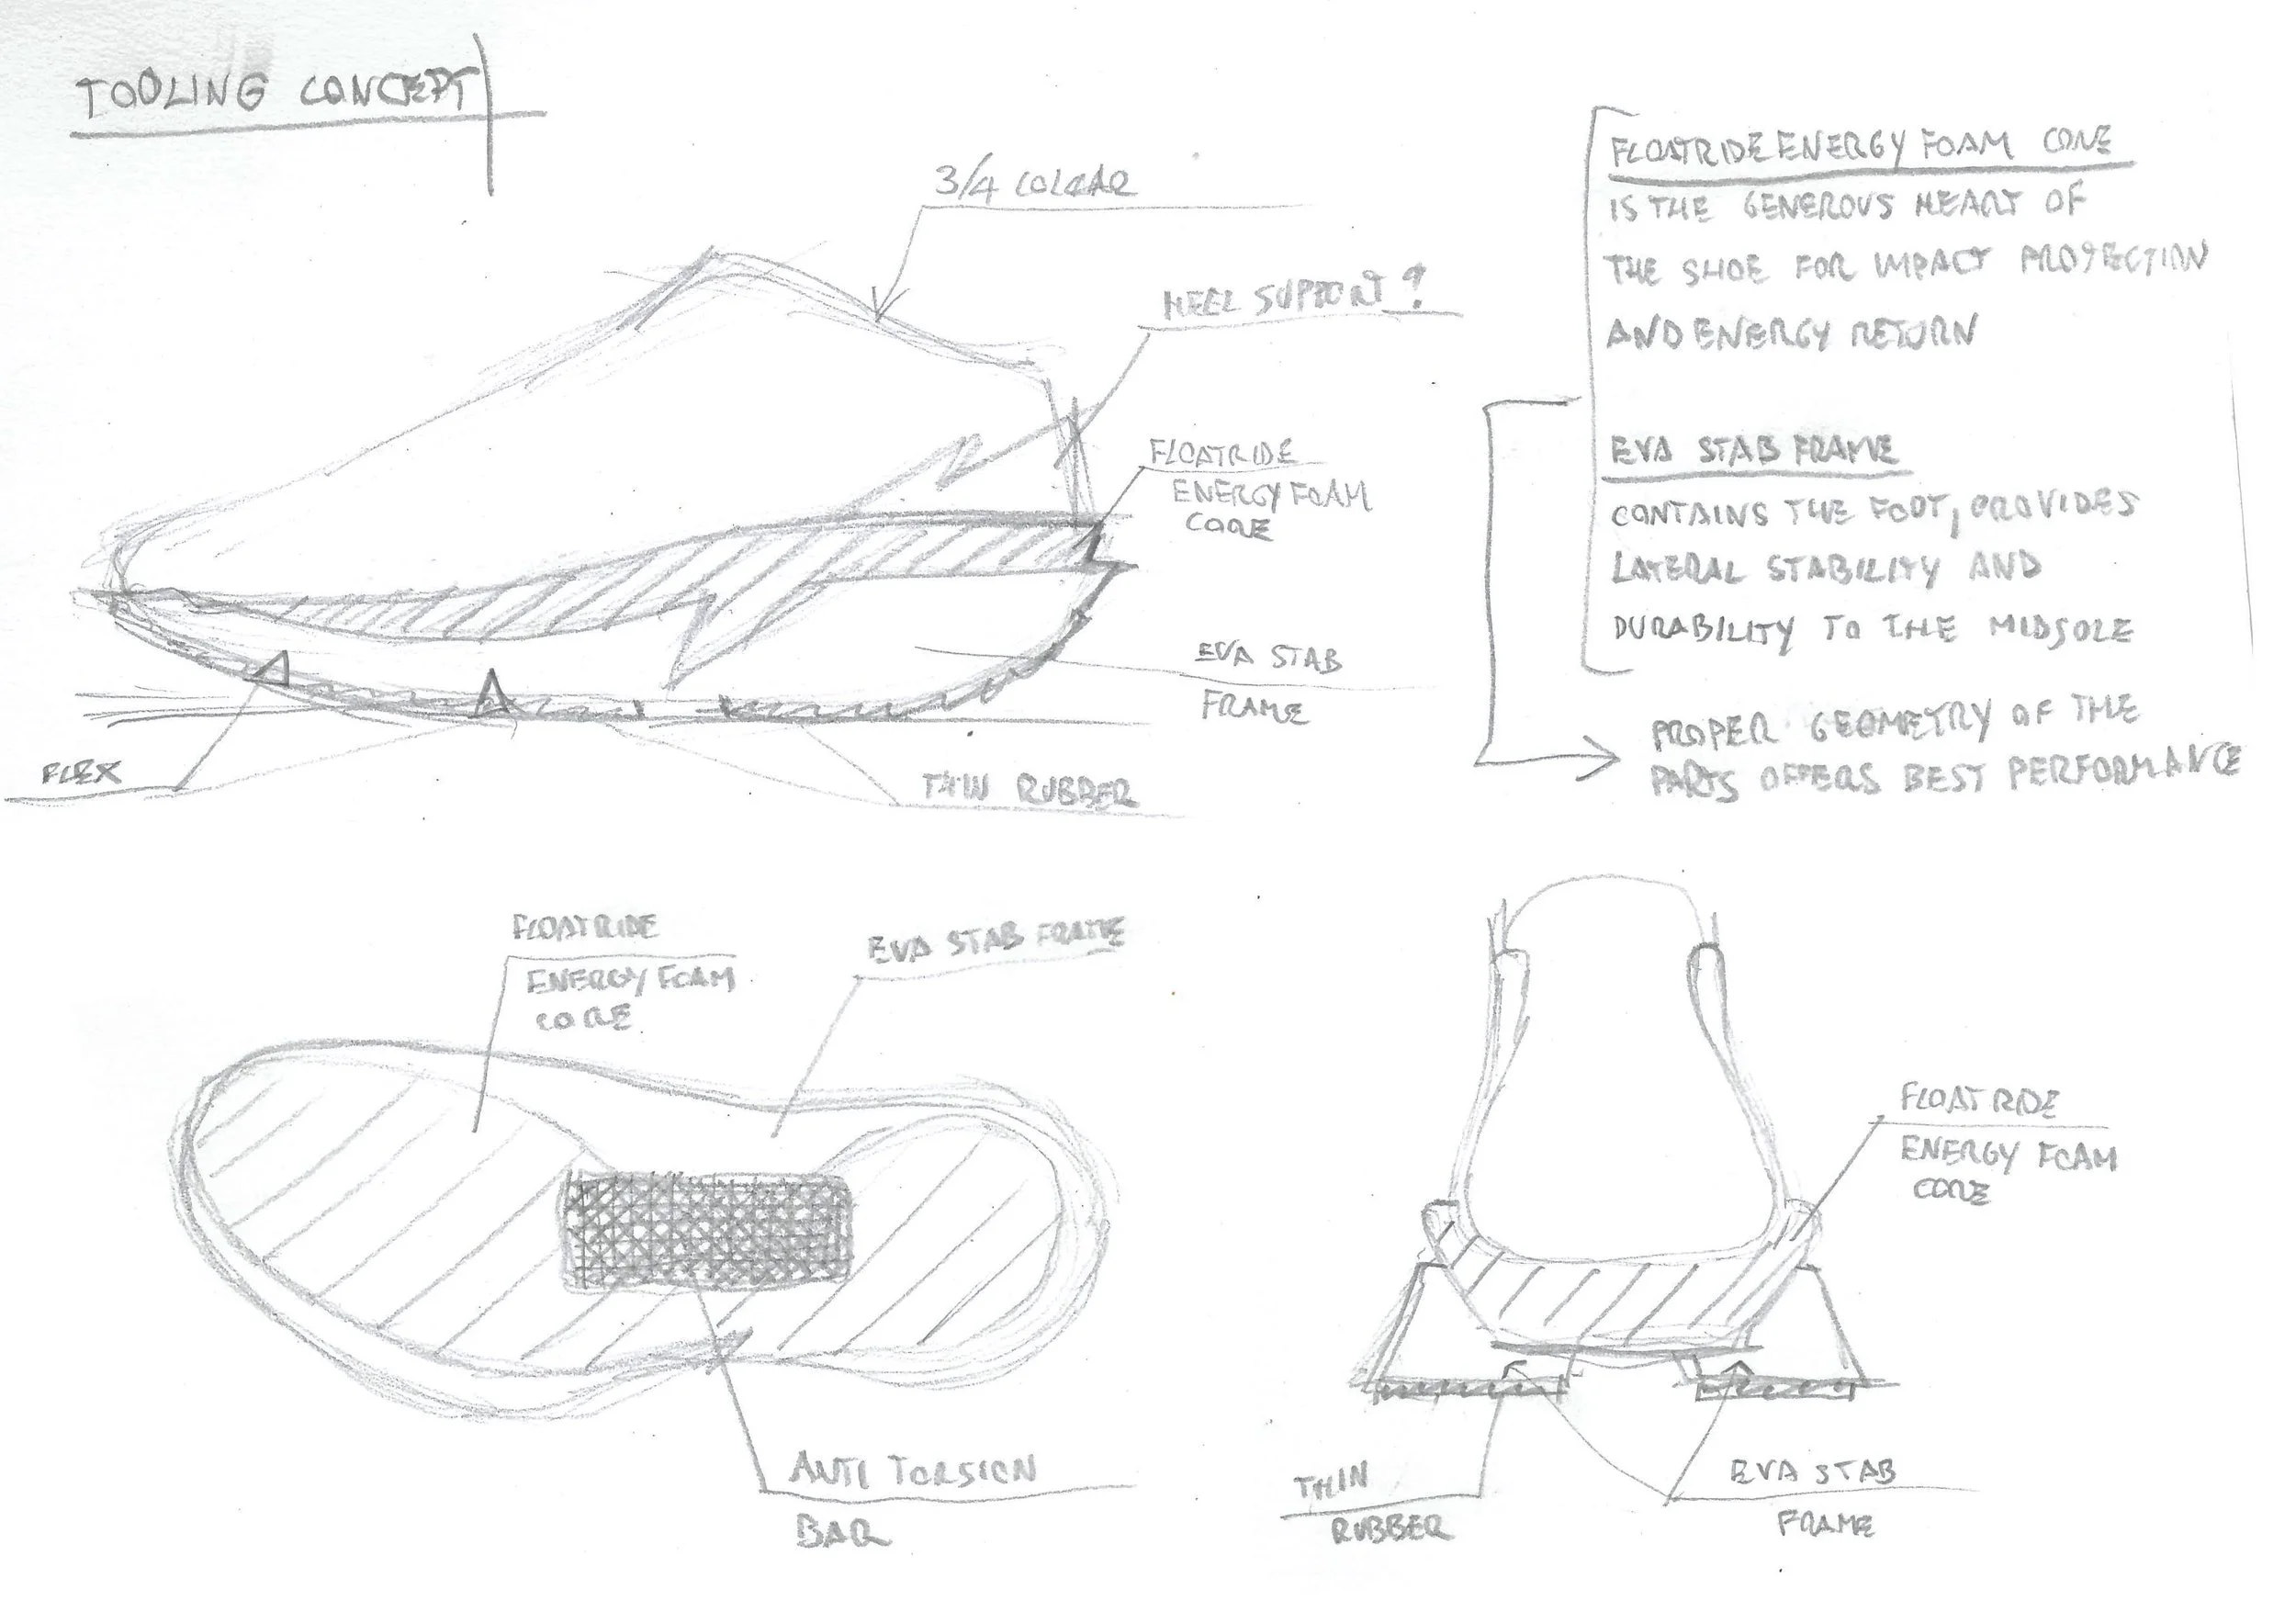 TOOLING CONCEPT
3/4 COLLAR
HEEL SUPPORT ?
FLOATRIDE
ENERGY FOAM
CORE
EVA STAB
FRAME
FLEX
THIN RUBBER
FLOATRIDE ENERGY FOAM CORE
IS THE GENEROUS HEART OF
THE SHOE FOR IMPACT PROTECTION
AND ENERGY RETURN
EVA STAB FRAME
CONTAINS THE FOOT, PROVIDES
LATERAL STABILITY AND
DURABILITY TO THE MIDSOLE
PROPER GEOMETRY OF THE
PARTS OFFERS BEST PERFORMANCE
FLOATRIDE
ENERGY FOAM
CORE
EVA STAB FRAME
ANTI TORSION
BAR
FLOATRIDE
ENERGY FOAM
CORE
THIN
RUBBER
EVA STAB
FRAME